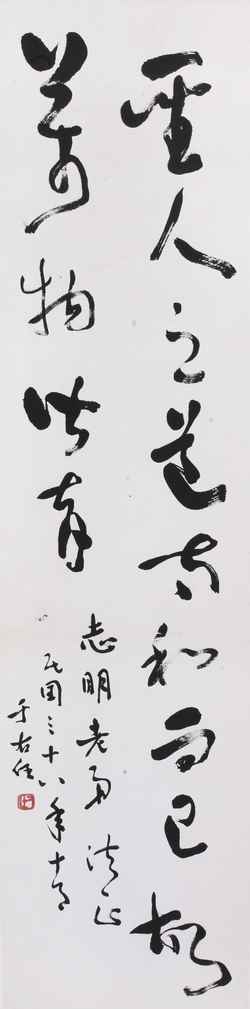 聖人之道和而已故
萬物皆育
志明老弟 法正
民國三十八年十月
于右任